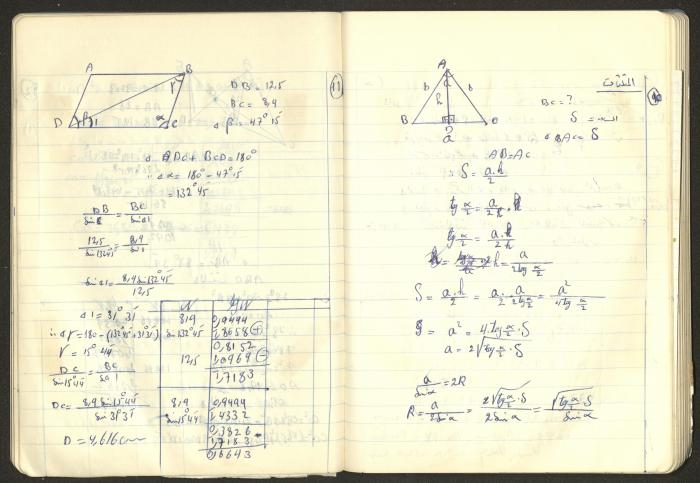 A B
D C
DB = 12,5
BC = 8,9
∢β = 47° 15'
∢ ADC + BCD = 180°
∢α = 180° - 47° 15'
= 132° 45'
12,5 / sin 132° 45' = 8,9 / sin 1
sin ∢1 = 8,9 sin 132° 45' / 12,5
∢1 = 31° 31'
∴ ∢γ = 180 - (132° 45' + 31° 31')
γ = 15° 44'
DC / sin 15° 44' = BC / sin 1
DC = 8,9 sin 15° 44' / sin 31° 31'
D = 4,616 cm
N
8,9 0,9494
sin 132° 45' 1,8658 +
0,8152
12,5 1,0969 -
1,7183
8,9 0,9494
sin 15° 44' 1,4332
0,3826
1,7183
0,6643
المثلثات
A
b b
h
B C
a
BC = ?
S
∢ BAC = α
AB = AC
S = a.h / 2
tg α/2 = a / 2h
h = a / 2tg α/2
S = a.h / 2 = a.a / = a² / 4tg α/2
a² = 4.tg α/2 . S
a = 2√tg α/2 . S
a / sin α = 2R
R = a / 2 sin α = 2√tg α/2 . S / 2 sin α = √tg α/2 . S / sin α